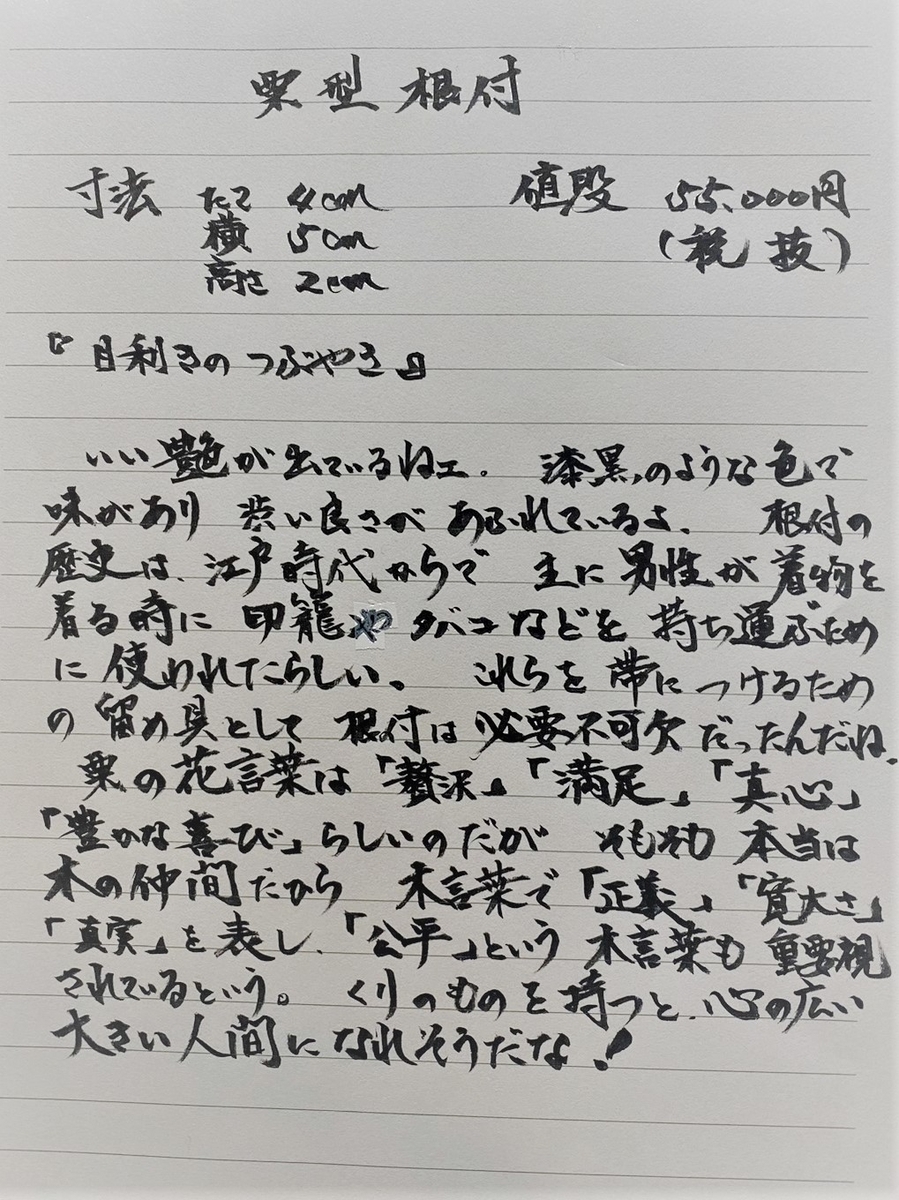 栗型根付
寸法 たて 4cm 値段 55,000円
横 5cm (税抜)
高さ 2cm
『目利きのつぶやき』
いい艶が出ているねェ。 漆黒のような色で
味があり 渋い良さが あふれているよ。 根付の
歴史は、江戸時代からで 主に 男性が 着物を
着る時に 印籠や タバコなどを 持ち運ぶため
に 使われてたらしい。 これらを 帯に つけるため
の 留め具として 根付は 必要不可欠 だったんだね。
栗の花言葉は「贅沢」「満足」「真心」
「豊かな喜び」らしいのだが そもそも 本当は
木の仲間だから 木言葉で「正義」「寛大さ」
「真実」を表し、「公平」という 木言葉も 重要視
されているという。 くりのものを持つと、心の広い
大きい人間に なれそうだな!